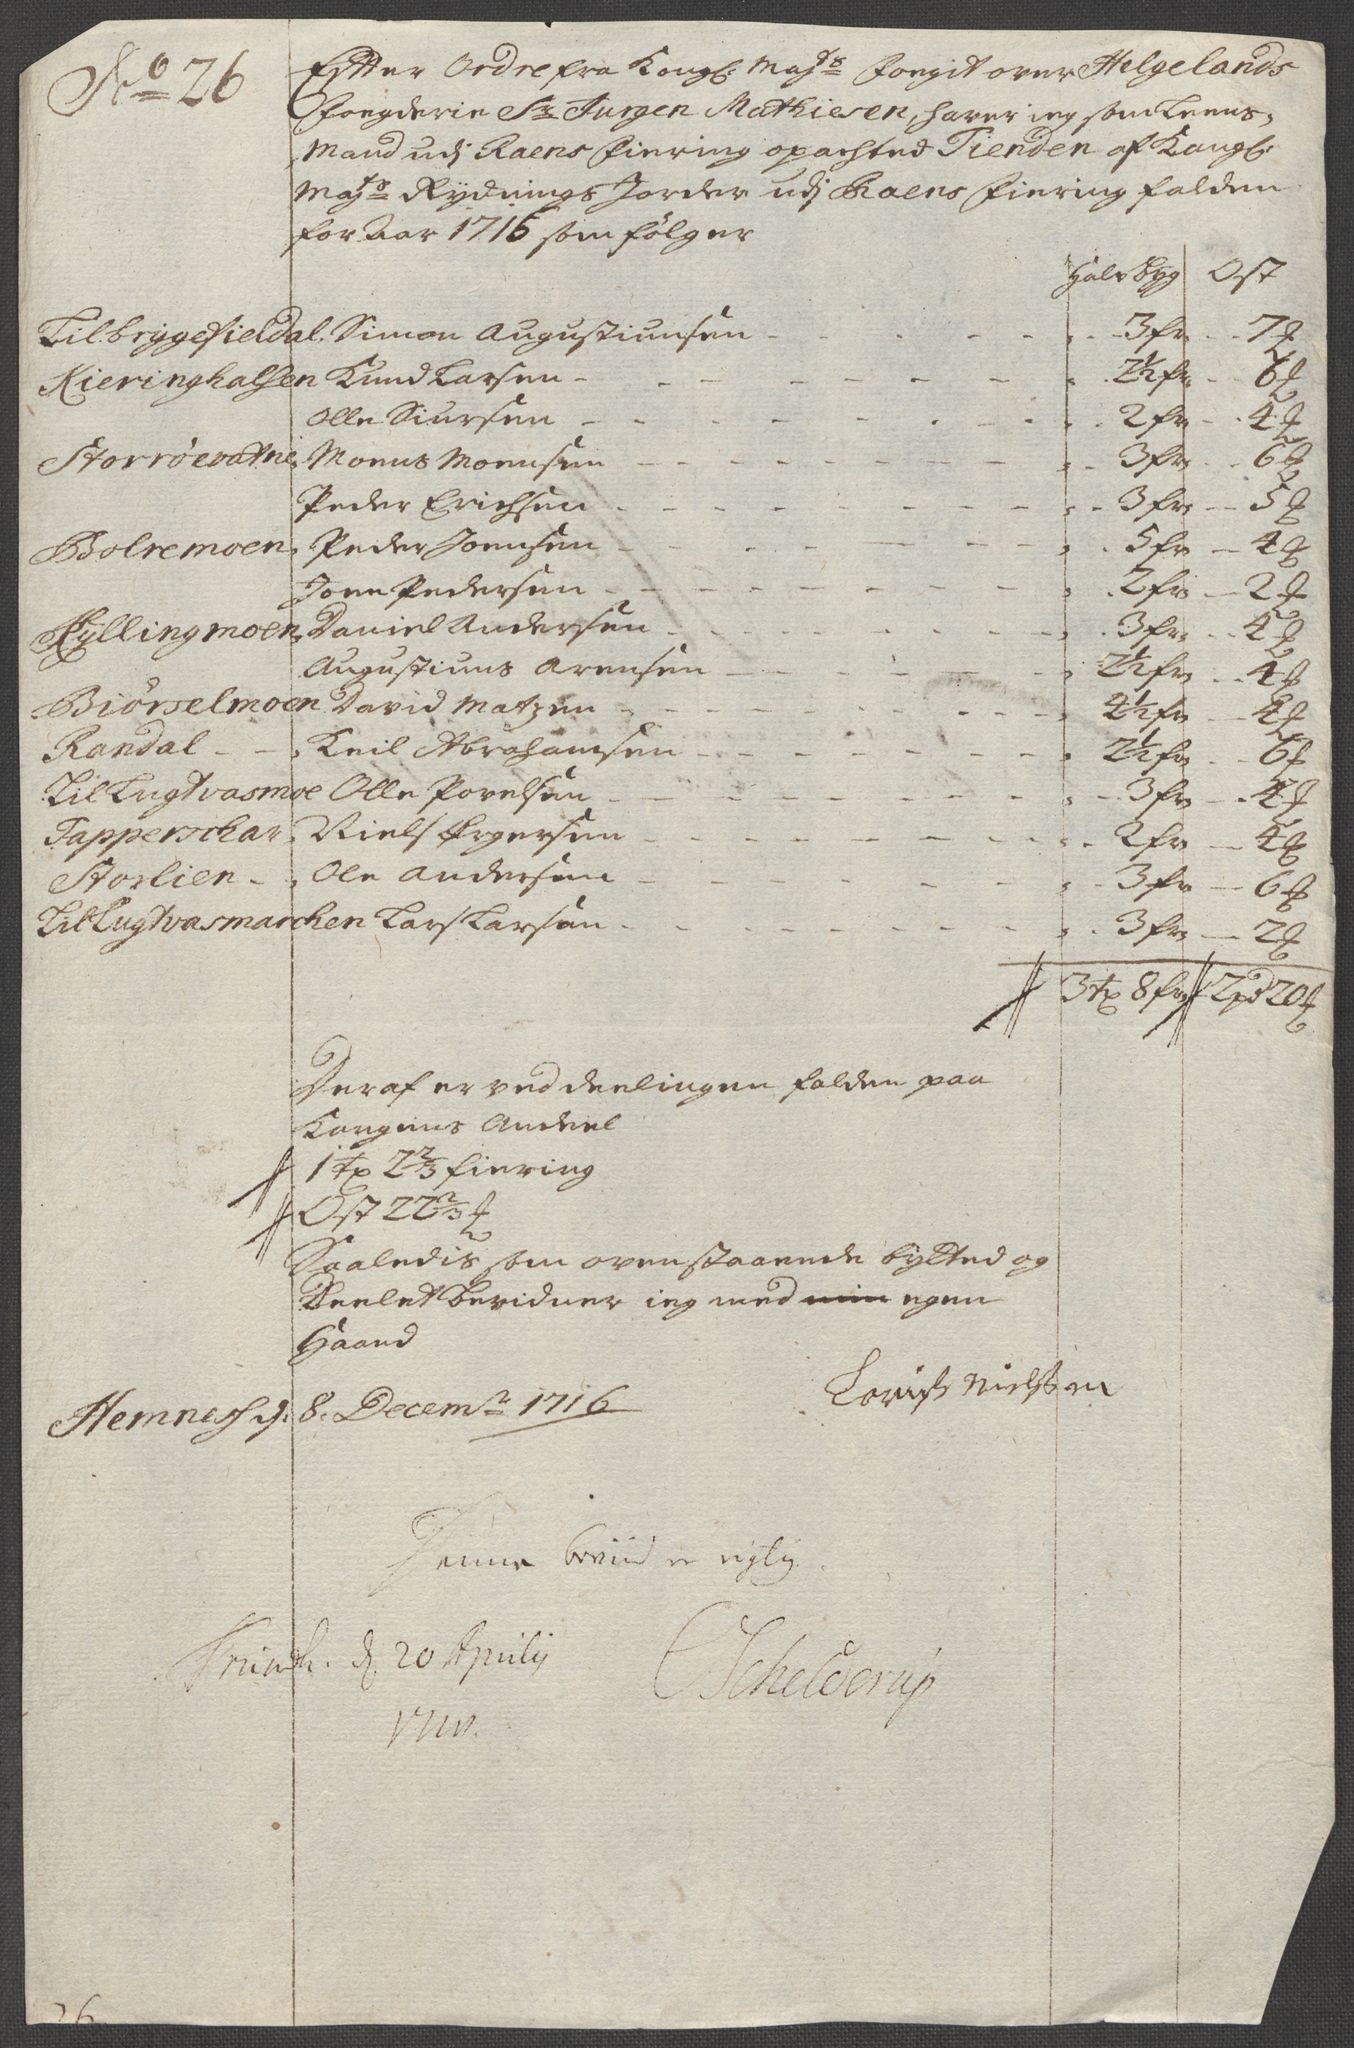 No 26
Efter Ordre fra Kongl: Mayts Foegit over Helgelands
Foegderie Sr Jurgen Mathiesen, haver ieg som Leens-
Mand udj Raens Fiering opachted Tienden af Kongl:
Mayts Rydnings Jorder udj Raens Fiering falden
for Aar 1716 som følger
Halv Byg Ost
Lil: bryggefieldal. Simon Augustinusen - 3 fr - 7 ℔
Kieringhalsen Knud Larsen - 2½ fr - 6 ℔
Olle Siursen - 2 fr - 4 ℔
Storrøevatne, Moens Moensen - 3 fr - 6 ℔
Peder Erichsen - 3 fr - 5 ℔
Bolremoen, Peder Joensen - 5 fr - 4 ℔
Joen Pedersen - 2 fr - 2 ℔
Hyllingmoen, Daniel Andersen - 3 fr - 4 ℔
Augustinus Arensen - 2½ fr - 4 ℔
Biørselmoen David Matzen - 4½ fr - 4 ℔
Randal - Keil Abrahamsen - 2½ fr - 6 ℔
Lil Lugtvasmoe Olle Povelsen - 3 fr - 4 ℔
Tapperschar, Niels Ergersen - 2 fr - 4 ℔
Storlien - Ole Andersen - 3 fr - 6 ℔
Lil Lugtvasmarchen Lars Larsen - 3 fr - 2 ℔
3 tø 8 fr 2 pd 20 ℔
Deraf er ved deelingen falden paa
Kongens Andeel
1 tø 2⅔ fiering
Ost 22⅔ ℔
Saaledis som ovenstaaende bytted og
Deelet bevidner ieg med min egen
Haand
Lorish Nielssen
Hemnes d: 8. Decembr 1716
Denne beviis er rigtig.
Trundh. d. 20 Aprilij
1717.
CSchelderup
26